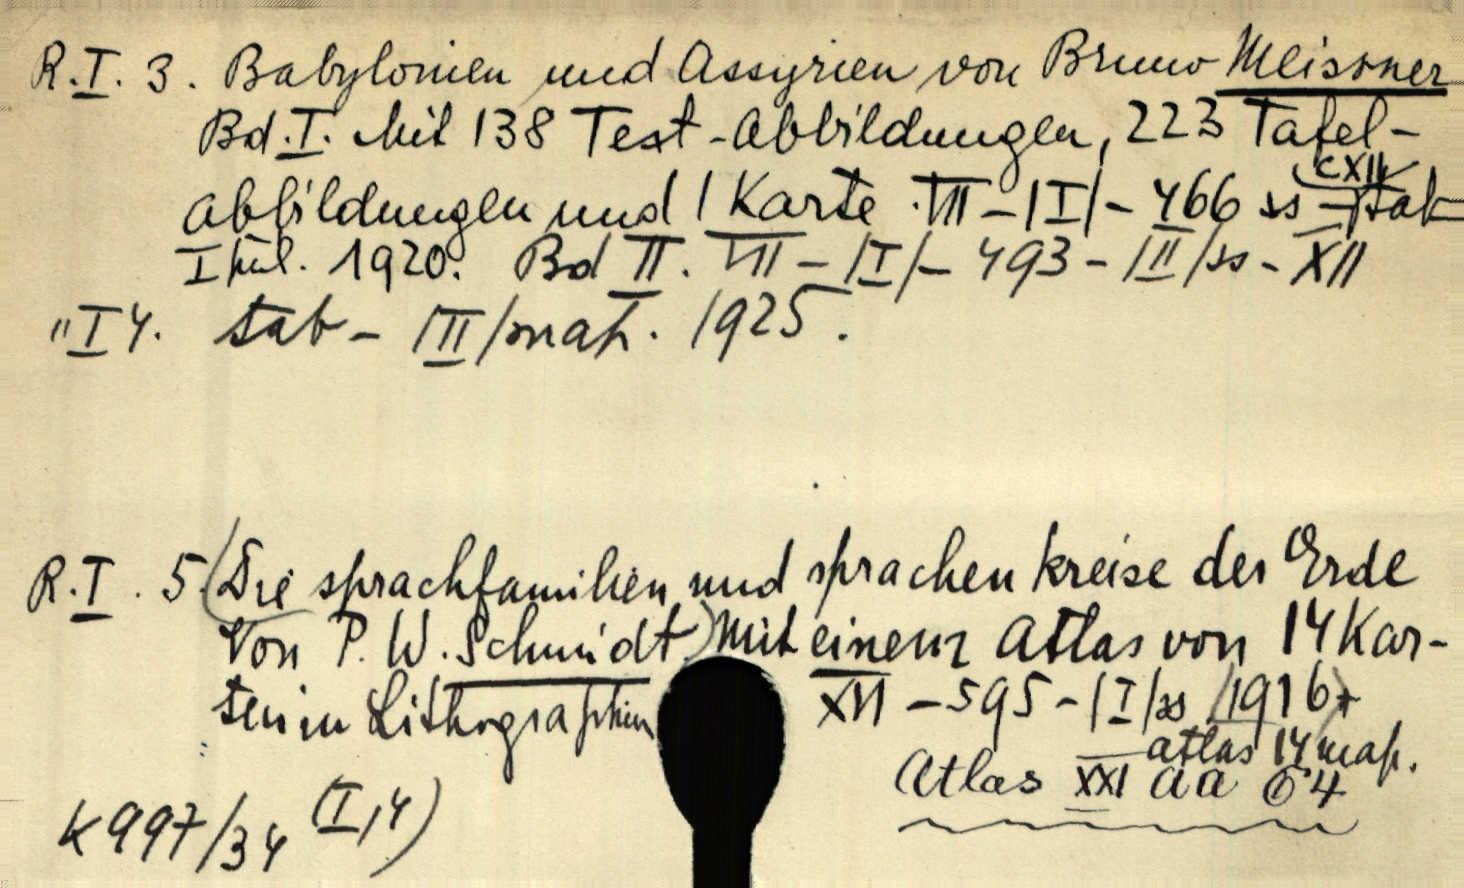 R.I. 3. Babylonien und Assyrien von Bruno Meissner
Bd.I. Mit 138 Text-Abbildungen, 223 Tafel-
abbildungen und 1 Karte. VIII-|I|-466 ss - CXII tab
1920. Bd II. VIII-|I|-493-|II|ss-XII
" I 4. tab - |II| map. 1925.
R.I. 5. (Die sprachfamilien und sprachenkreise der Erde
Von P. W. Schmidt) Mit einem Atlas von 14 Kar-
ten in Lithographien XVI-595-|I|ss (1916) +
atlas 14 map.
Atlas XXI aa 64
K 997/34 (I,4)